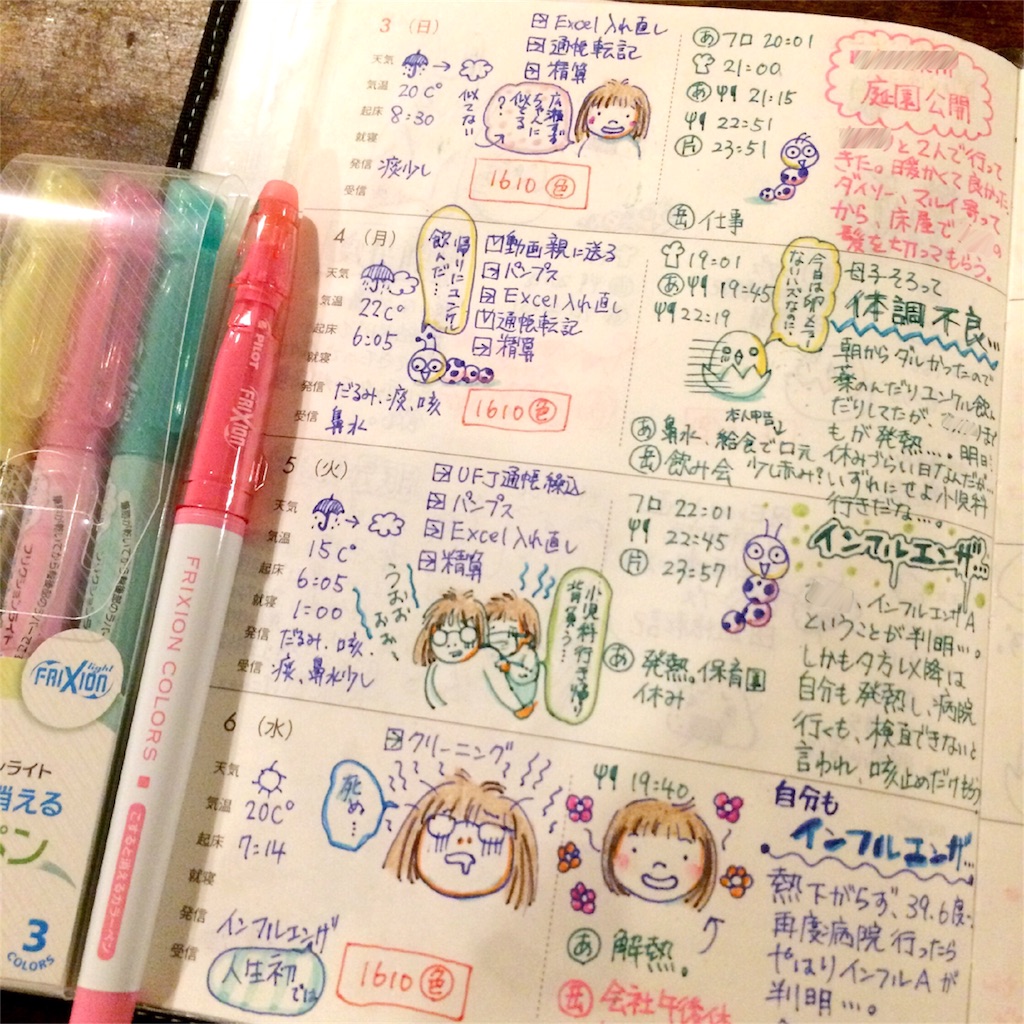 3 (日)
天気
気温 20C°
起床 8:30
就寝
発信 痰少し
受信
Excel入れ直し
通帳転記
精算
広瀬すず
ちゃんに
似てる
?
似てない
1610 色
あ フロ 20:01
21:00
あ 21:15
22:51
片 23:51
岳 仕事
庭園公開
と2人で行って
きた。暖かくて良かった
ダイソー、マルイ寄って
から、床屋で の
髪を切ってもらう。
4 (月)
天気
気温 22C°
起床 6:05
就寝
発信 だるみ、痰、咳
受信 鼻水
帰りにユンケル
飲んだ…
動画親に送る
パンプス
Excel入れ直し
通帳転記
精算
1610 色
19:01
あ 19:45
22:19
今日は卵
ないハズなのに…
本人申告↓
あ 鼻水、給食で口元
少し赤み?
岳 飲み会
母子そろって
体調不良…
朝からダルかったので
薬のんだりユンケル飲ん
だりしてたが、
もが発熱…。明日
休みづらい日なんだが…
いずれにせよ小児科
行きだな…。
5 (火)
天気
気温 15C°
起床 6:05
就寝 1:00
発信 だるみ、咳、
受信 痰、鼻水少し
UFJ通帳繰込
パンプス
Excel入れ直し
精算
うおお
おお…
小児科行き帰り
背負う…
フロ 22:01
22:45
片 23:57
あ 発熱。保育園
休み
インフルエンザ…
インフルエンザA
ということが判明…。
しかも夕方以降は
自分も発熱し、病院
行くも、検査できないと
言われ、咳止めだけもらう
6 (水)
天気
気温 20C°
起床 7:14
就寝
発信
受信
インフルエンザ
人生初
では
クリーニング
死ぬ…
1610 色
19:40
あ 解熱。
岳 会社午後休
自分も
インフルエンザ…
熱下がらず、39.6度…
再度病院行ったら
やはりインフルAが
判明…。
PILOT
FRIXION
FRIXION COLORS
こすると消えるカラーペン
FRIXION light
ライト
消える
ペン
3
COLORS
フリクションライト